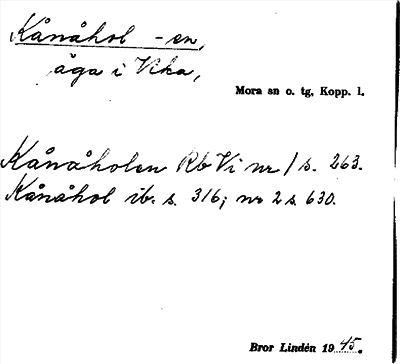 Kånåhol -en,
äga i Vika,
Mora sn o. tg, Kopp. l.
Kånåholen Rb Vi nr 1 s. 263.
Kånåhol ib. s. 316; nr 2 s. 630.
Bror Lindén 1945.